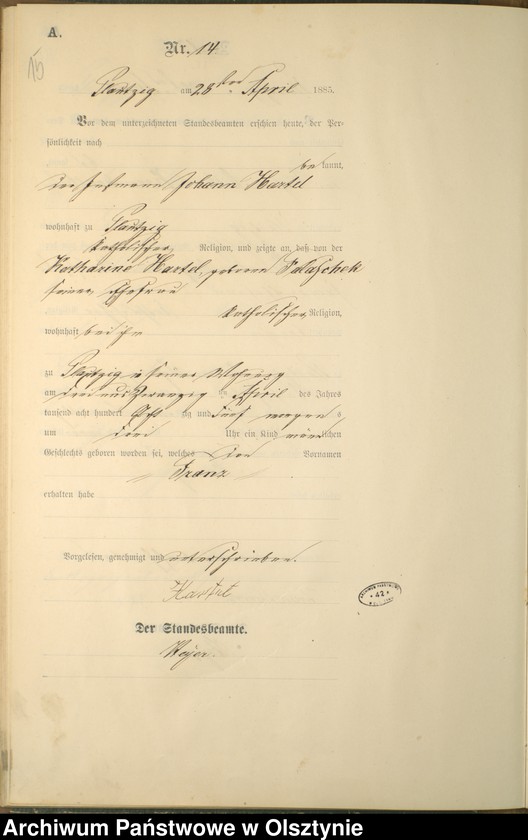 A.
15
Nr. 14
Plautzig am 28ten April 1885.
Vor dem unterzeichneten Standesbeamten erschien heute, der Per-
sönlichkeit nach
bekannt,
der Instmann Johann Hartel
wohnhaft zu Plautzig
katholischer Religion, und zeigte an, daß von der
Katharina Hartel, geborene
seiner Ehefrau
katholischer Religion,
wohnhaft bei ihm
zu Plautzig in seiner Wohnung
am drei und zwanzig ten April des Jahres
tausend acht hundert achtzig und fünf morgens
um drei Uhr ein Kind männlichen
Geschlechts geboren worden sei, welches den Vornamen
Franz
erhalten habe
Vorgelesen, genehmigt und unterschrieben.
Der Standesbeamte.
42
Archiwum Państwowe w Olsztynie